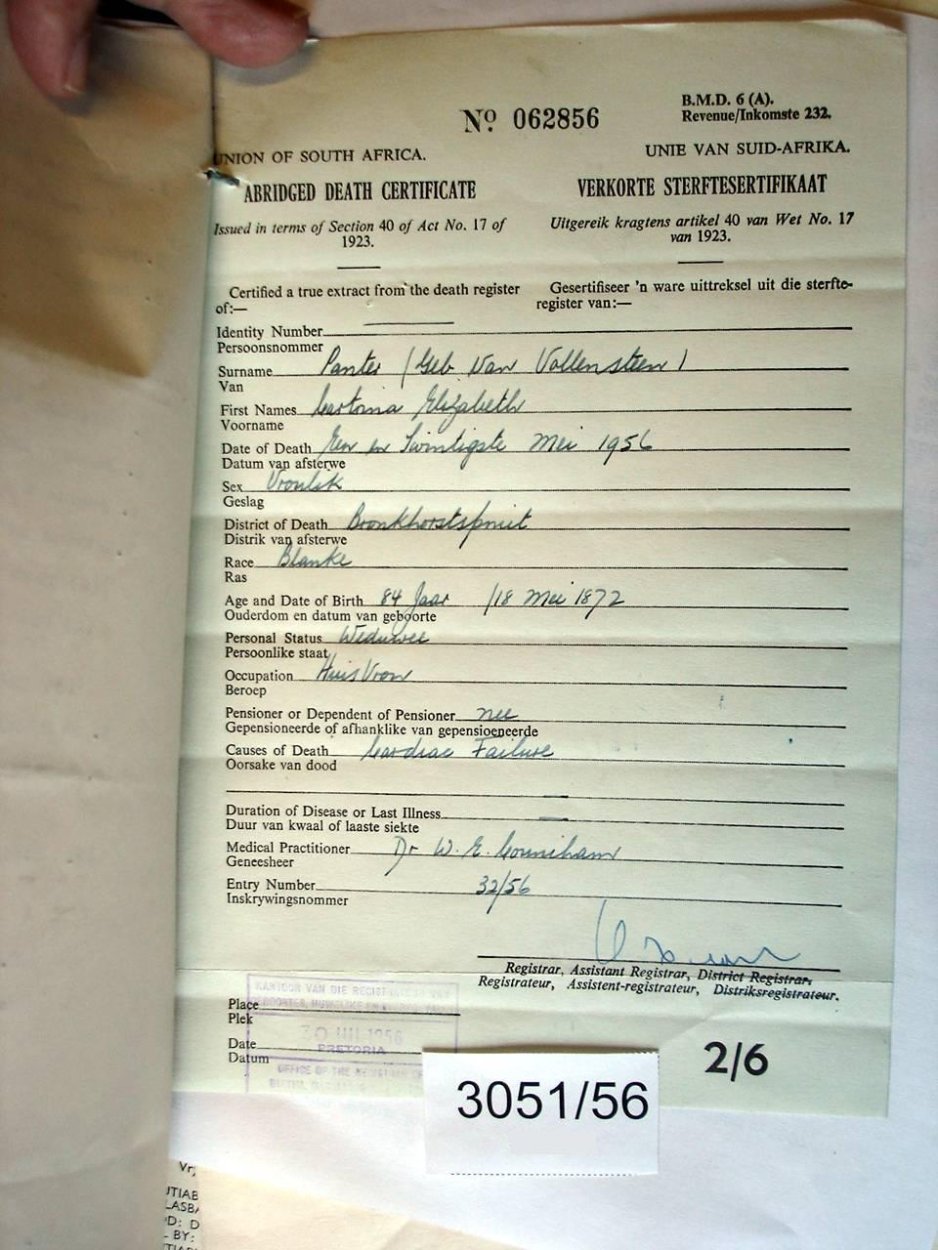 No 062856
B.M.D. 6 (A).
Revenue/Inkomste 232.
UNION OF SOUTH AFRICA.
UNIE VAN SUID-AFRIKA.
ABRIDGED DEATH CERTIFICATE
VERKORTE STERFTESERTIFIKAAT
Issued in terms of Section 40 of Act No. 17 of
1923.
Uitgereik kragtens artikel 40 van Wet No. 17
van 1923.
Certified a true extract from the death register
of:—
Gesertifiseer 'n ware uittreksel uit die sterfte-
register van:—
Identity Number
Persoonsnommer
Surname Panter (Geb Van Vollensteen)
Van
First Names Elizabeth
Voorname
Date of Death Een en Twintigste Mei 1956
Datum van afsterwe
Sex Vroulik
Geslag
District of Death Bronkhorstspruit
Distrik van afsterwe
Race Blanke
Ras
Age and Date of Birth 84 Jaar /18 Mei 1872
Ouderdom en datum van geboorte
Personal Status Weduwee
Persoonlike staat
Occupation HuisVrou
Beroep
Pensioner or Dependent of Pensioner nee
Gepensioneerde of afhanklike van gepensioeneerde
Causes of Death Cardiac Failure
Oorsake van dood
Duration of Disease or Last Illness —
Duur van kwaal of laaste siekte
Medical Practitioner Dr W. E. Counihan
Geneesheer
Entry Number 32/56
Inskrywingsnommer
Registrar, Assistant Registrar, District Registrar.
Registrateur, Assistent-registrateur, Distriksregistrateur.
KANTOOR VAN DIE
Place
Plek
1956
Date
Datum
PRETORIA
OFFICE OF THE
2/6
3051/56
Vr
TIAB
LASBA
D: D
- BY: